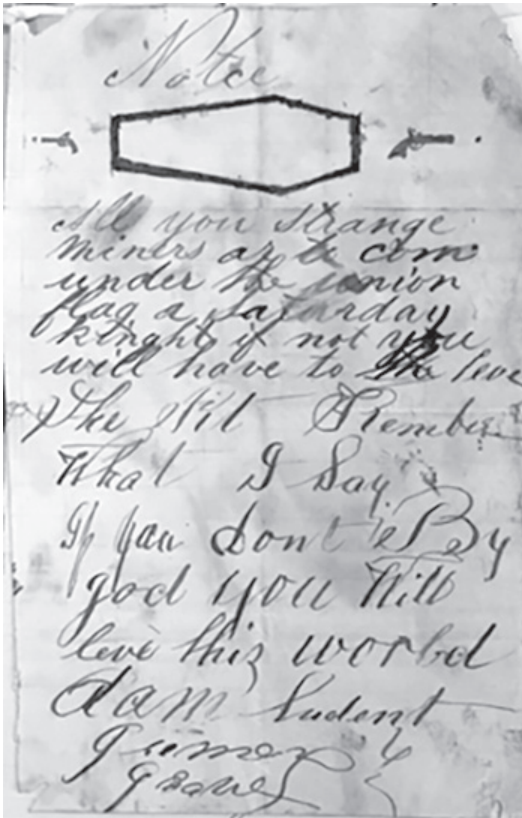 Notce
All you strange
miners are to com
under the union
flag a Saturday
kinght if not you
will have to the leve
the Pit Rember
What I Say
If you dont By
god you Will
leve this world
dam Sudent